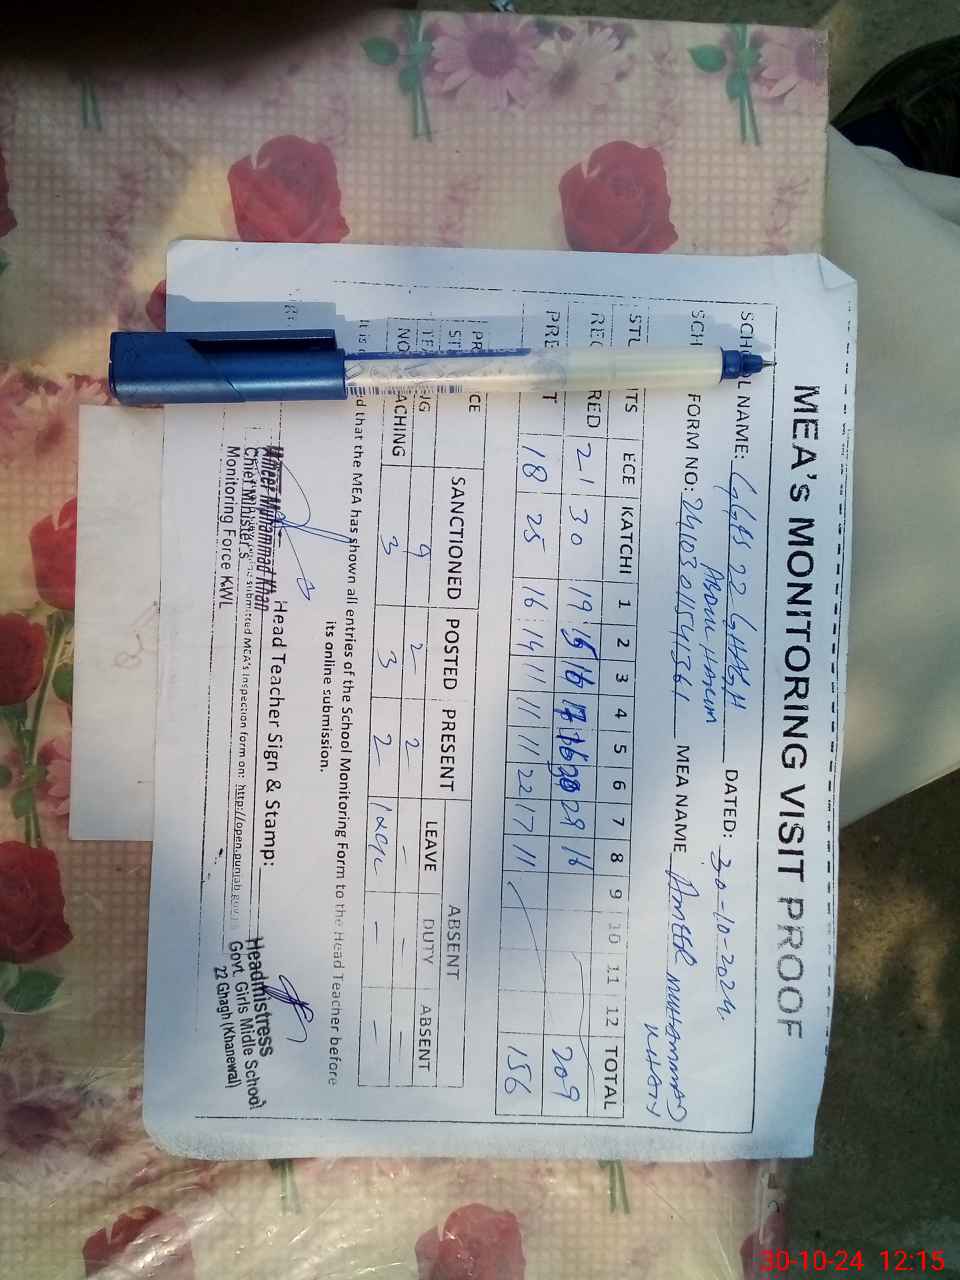 MEA's MONITORING VISIT PROOF
SCH L NAME: GGES 22-GHAGH DATED: 30-10-2024
ABDUL HAKIM
SCH FORM NO: MEA NAME AMEER MUHAMMAD
KHAN
STU TS ECE KATCHI 1 2 3 4 5 6 7 8 9 10 11 12 TOTAL
REG RED 21 30 19 29 16 209
PRE T 18 25 16 14 11 11 11 22 17 11 156
PR CE SANCTIONED POSTED PRESENT ABSENT
ST LEAVE DUTY ABSENT
TEA NG 9 2 2 - - -
NO ACHING 3 3 2 - -
It is d that the MEA has shown all entries of the School Monitoring Form to the Head Teacher before
its online submission.
Head Teacher Sign & Stamp:
Ameer Muhammad Khan
Chief Minister's
Monitoring Force KWL
submitted MEA's inspection form on: http://open.punjab.gov.
Headmistress
Govt Girls Midle School
22 Ghagh (Khanewal)
30-10-24 12:15